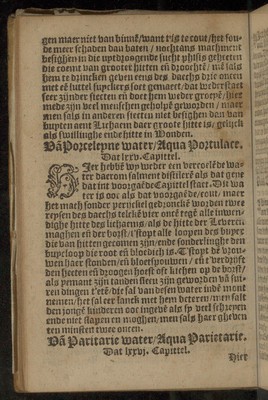 gen maer niet van binnē/want tis te cout/het son-
de meer schaden dan baten / nochtans machment
besighen in die uptdroogende sucht phisis geheeten
die coemt van grooter hitten eñ droochte / mē sals
hem te drincken geven eens des daechs drie oncen
met eē luttel supckers soet gemaect/dat wederstaet
seer zijnder siecten eñ doet hem weder groeyē/hier
mede zijn veel menschen geholpē geworden/ maer
men sals in anderen siecten niet besighen dan van
buyten aent Lichaem daer groote hitte is/gelijck
als swillinghe ende hitte in Wonden.
Vā Porceleyne water/Aqua Portulace.
Dat lxxv. Capittel.
Hier hebdē wy weder een vercoelēde wa-
ter daerom salment distilerē als dat gene
dat int voorgaēde Capittel staet. Dit wa
ter is oec als dat voorgaēde/cout/ maer
het mach sonder perickel gedroncke worden twee
reysen des daechs telckē vier oncē tegē alle inwen-
dighe hitte des lichaems/als de hitte der Leveren/
maghen eñ der borst/tstopt alle loopen des buycx
die van hitten gecomen zijn/ende sonderlinghe den
buycloop die root eñ bloedich is. Tstopt de wonn-
wen haer stonden/eñ bloetspouwen / tis den drogen
den heeten eñ droogen hoest oft kichen op de borst/
als yemant zijn tanden sleen zijn geworden vā suu-
ren dingen tetē/die sal van desen water indē mont
nemen/het sal eer lanck met hem beteren/men salt
den jongē kinderen ooc ingevē als sy veel schreyen
ende niet slapen en moghen/men sals haer gheven
ten minsten twee oncen.
Vā Paritarie water/Aqua Parietarie.
Dat lxxvj. Capittel.
Hier